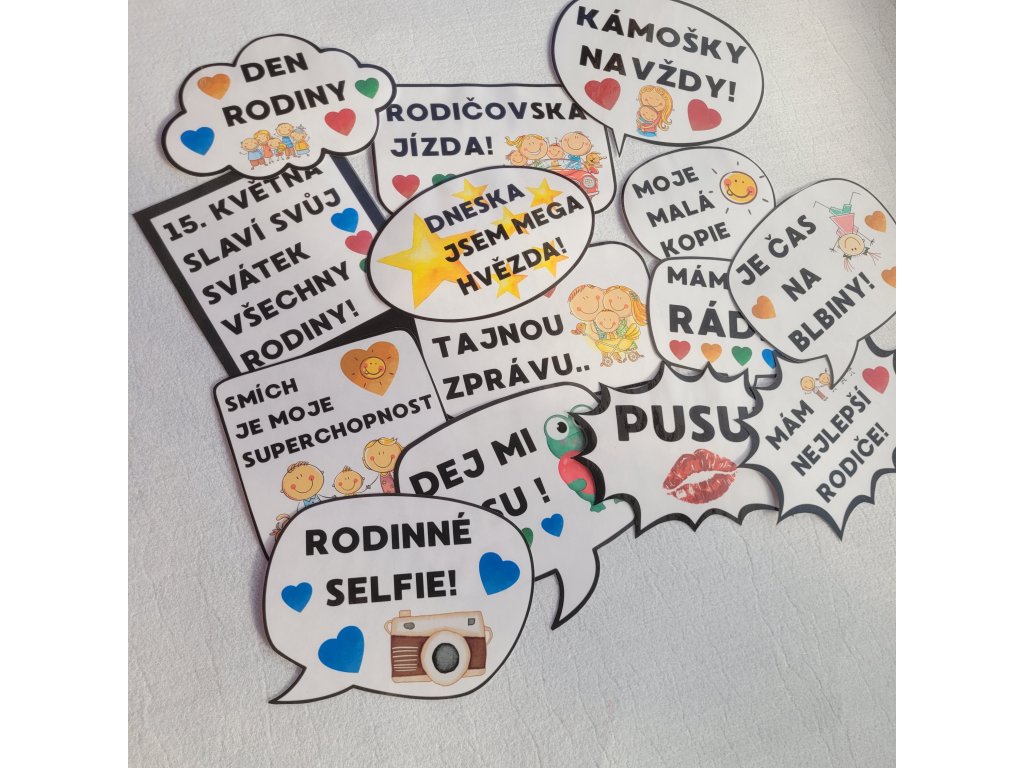 DEN
RODINY
KÁMOŠKY
NAVŽDY!
RODIČOVSKÁ
JÍZDA!
15. KVĚTNA
SLAVÍ SVŮJ
SVÁTEK
VŠECHNY
RODINY!
DNESKA
JSEM MEGA
HVĚZDA!
MOJE
MALÁ
KOPIE
JE ČAS
NA
BLBINY!
MÁM
RÁD
TAJNOU
ZPRÁVU..
SMÍCH
JE MOJE
SUPERCHOPNOST
DEJ MI
SU !
PUSU
MÁM
NEJLEPŠÍ
RODIČE!
RODINNÉ
SELFIE!